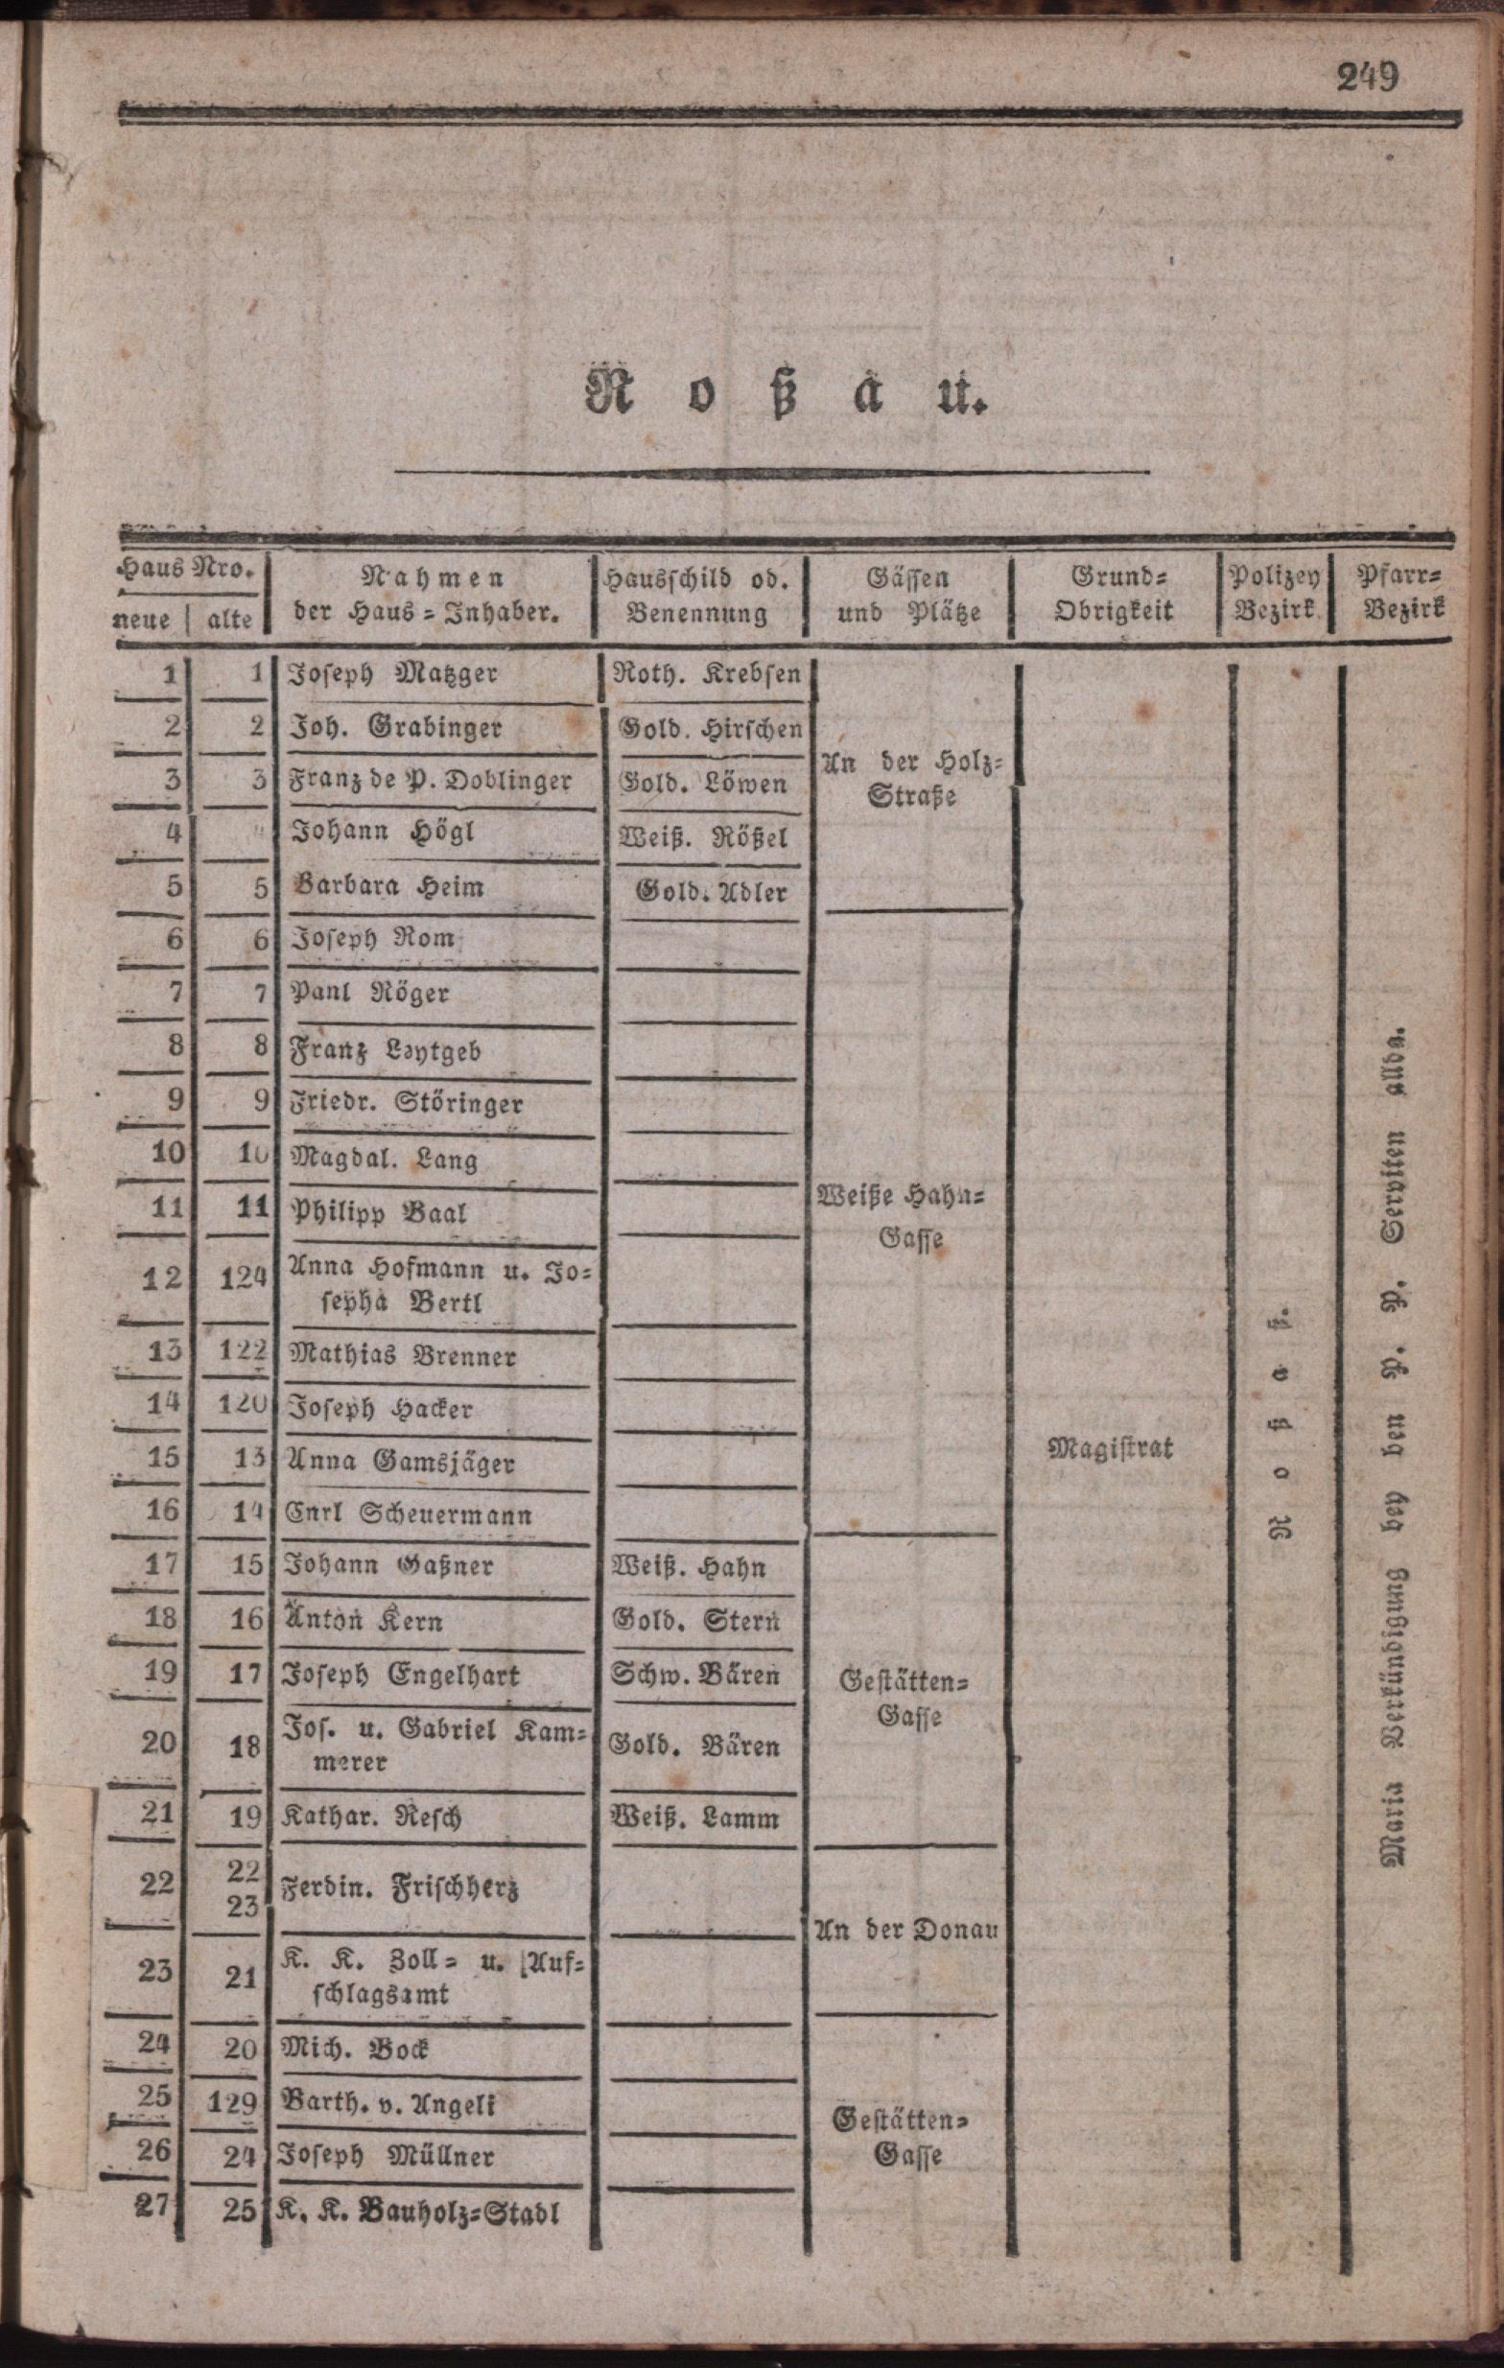 249
Roßau.
Haus Nro. Nahmen Hausschild od. Gässen Grund= Polizey Pfarr=
neue alte der Haus=Inhaber. Benennung und Plätze Obrigkeit Bezirk Bezirk
1 1 Joseph Matzger Roth. Krebsen
2 2 Joh. Grabinger Gold. Hirschen
An der Holz=
3 3 Franz de P. Doblinger Gold. Löwen
Straße
4 4 Johann Högl Weiß. Rößel
5 5 Barbara Heim Gold. Adler
6 6 Joseph Rom
7 7 Panl Röger
8 8 Franz Leytgeb
9 9 Friedr. Störinger
10 10 Magdal. Lang
Weiße Hahn=
11 11 Philipp Baal
Gasse
12 124 Anna Hofmann u. Jo=
sepha Bertl
13 122 Mathias Brenner
14 120 Joseph Hacker
Magistrat
15 13 Anna Gamsjäger
16 14 Carl Scheuermann
17 15 Johann Gaßner Weiß. Hahn
18 16 Anton Kern Gold. Stern
19 17 Joseph Engelhart Schw. Bären Gestätten=
Gasse
20 18 Jos. u. Gabriel Kam= Gold. Bären
merer
21 19 Kathar. Resch Weiß. Lamm
22 22 Ferdin. Frischherz
23
An der Donau
23 21 K. K. Zoll= u. Auf=
schlagsamt
24 20 Mich. Bock
25 129 Barth. v. Angeli Gestätten=
26 24 Joseph Müllner Gasse
27 25 K. K. Bauholz=Stadl
Roßau.
Maria Verkündigung bey den P. P. Serviten allda.